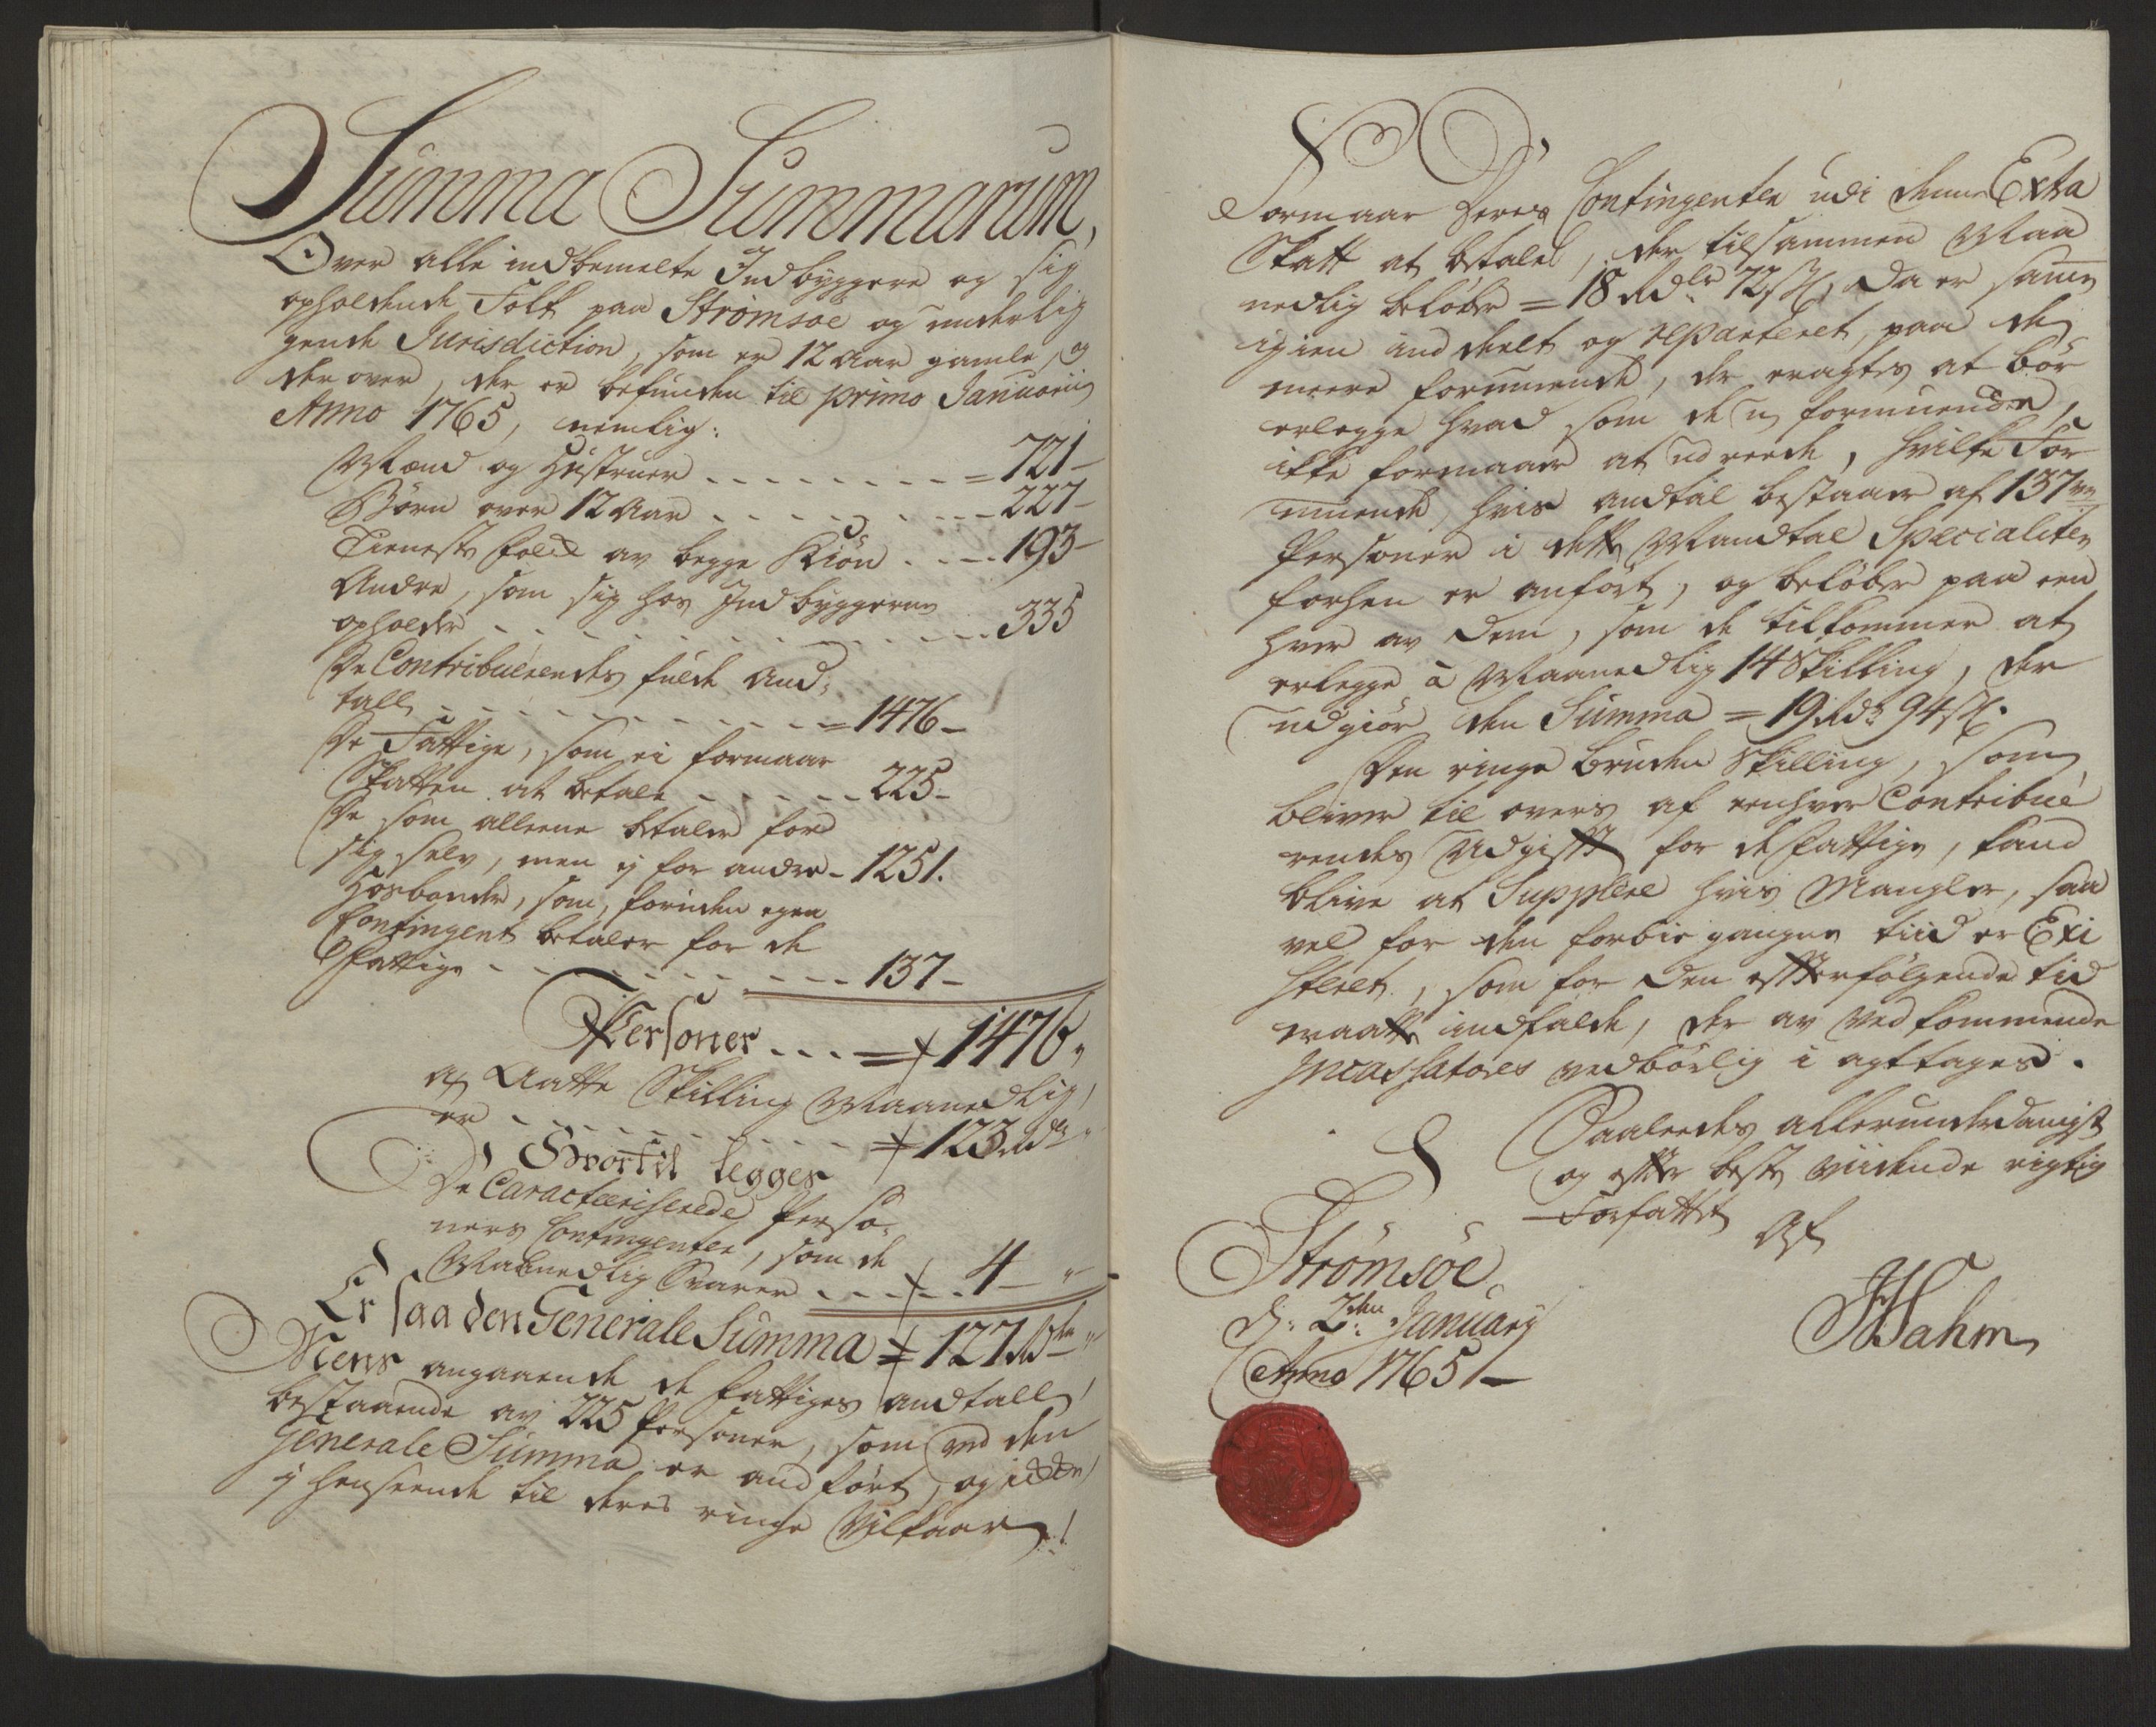 Summa Summarum,
Over alle indbemelte Indbyggere og sig
opholdende Folk paa Strømsøe og underlig
gende Jurisdiction, som er 12 Aar gamle, og
der over, der er befunden til primo Januarii
Anno 1765, nemlig:
Mænd og Hustruer - - - - - - - - = 721 -
Børn over 12 Aar - - - - - - - - 227 -
Tieneste folck av begge Kiøn - - - - 193 -
Andre, som sig hos Indbyggerne
opholder - - - - - - - - - - - - 335
De Contribuerendes fulde And-
tall - - - - - - - - - - - = 1476 -
De Fattige, som ei formaar
Skatten at betale - - - - - - 225 -
De som alleene betaler for
sig selv, men ej for andre - 1251.
Hosbonder, som, foruden egen
Contingent betaler for de
Fattige - - - - - - - - - - 137 -
Personer - - - = 1476,
af Aatte Skilling Maanedlig,
er - - - - - - - - - - - 123 Rdr "
Hvortil legges
De Caracteriserede Perso-
ners Contingenter, som de
Maanedlig Svarer - - - - - 4 - "
Er saa den Generale Summa = 127 Rdr "
Mens angaaende de Fattiges Andtall,
bestaaende av 225 Personer, som ved den
Generale Summa er andført, og
j henseende til deres ringe Vilkaar,
Formaar Deres Contingenter udi denne Exta
Skatt at betale, der tilsammen Maa
nedlig beløber = 18 Rdlr 72 s, da er samme
igien inddeelt og reparteret, paa de
meere formuende, der eragtes at bør
erlegge hvad som de u formuende,
ikke formaar at udreede, hvilke For
muende, hvis andtal bestaaer af 137ve
Personer i dette Mandtal Specialiter
forhen er anført, og beløber paa een
hver av dem, som de tilkommer at
erlegge a Maanedlig 14 Skilling, der
udgiør den Summa = 19 Rdr 94 s.
Den ringe bruden Skilling, som
bliver til overs af eenhver Contribue
rendes Udgift for de Fattige, kand
blive at Supplere hvis Mangler, saa
vel for den forbie gangne tiid er Exi
steret, som for den efterfølgende tid
maatte indfalde, der av vedkommende
Incassatores vedbørlig i agttages.
Saaleedes allerunderdanigst
og efter beste Viidende rigtig
Forfattet
Af
Strømsøe
d: 2den January
Anno 1765 -
JHahm